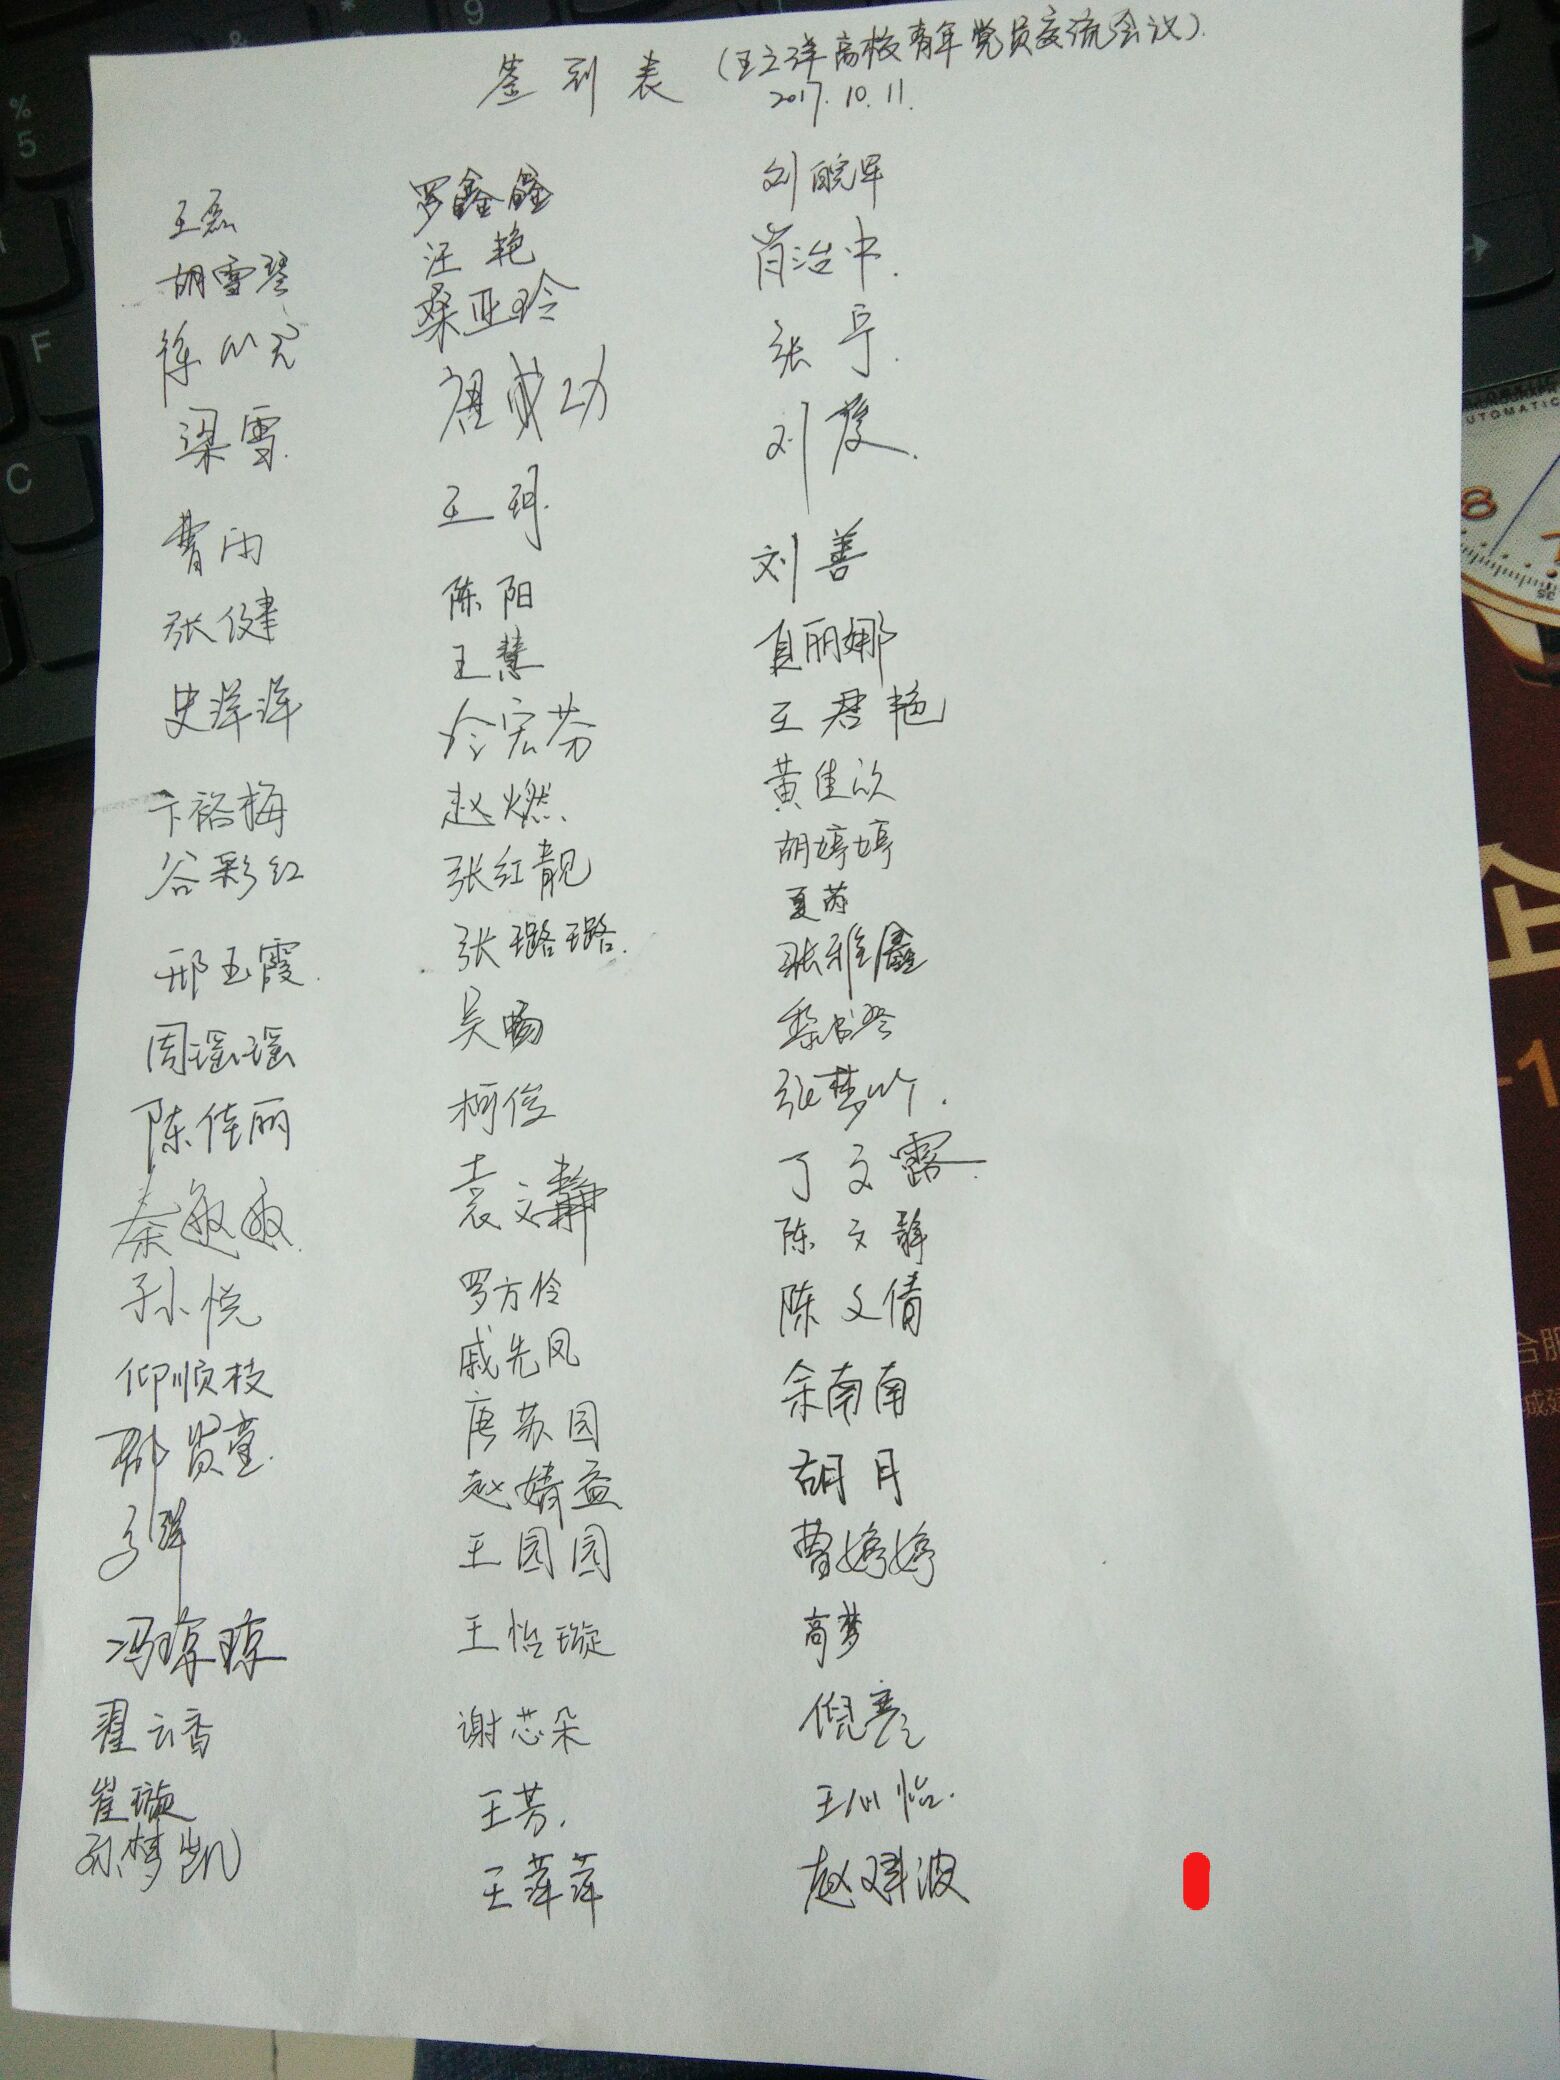 签到表（王立洋高校青年党员交流会议）
2017.10.11.
王磊
胡雪琴
徐以宏
梁雪.
曹雨
张健
史洋洋
卞裕梅
谷彩红
邢玉霞.
周瑶瑶
陈佳丽
秦敏敏.
孙悦
仰顺枝
冯琼琼
翟云香
崔璇
孙梦凯
罗鑫鑫
汪艳
桑亚玲
成功
王珂.
陈阳
王慧
宏芬
赵燃.
张红靓
张璐璐.
吴畅
柯俊
袁文静
罗方伶
戚先凤
唐苏园
赵婧益
王园园
王怡璇
谢芯朵
王芳.
王萍萍
刘皖军
肖治中.
张宁.
刘
刘善
夏丽娜
王君艳
黄佳欣
胡婷婷
夏芮
张雅鑫
张梦竹.
丁文露.
陈文静
陈文倩
余南南
胡月
曹婷婷
高梦
倪
王心怡.
赵 波
企
-1
合肥
城
8
7
UTOMATIC
%
5
&
*
9
F
C